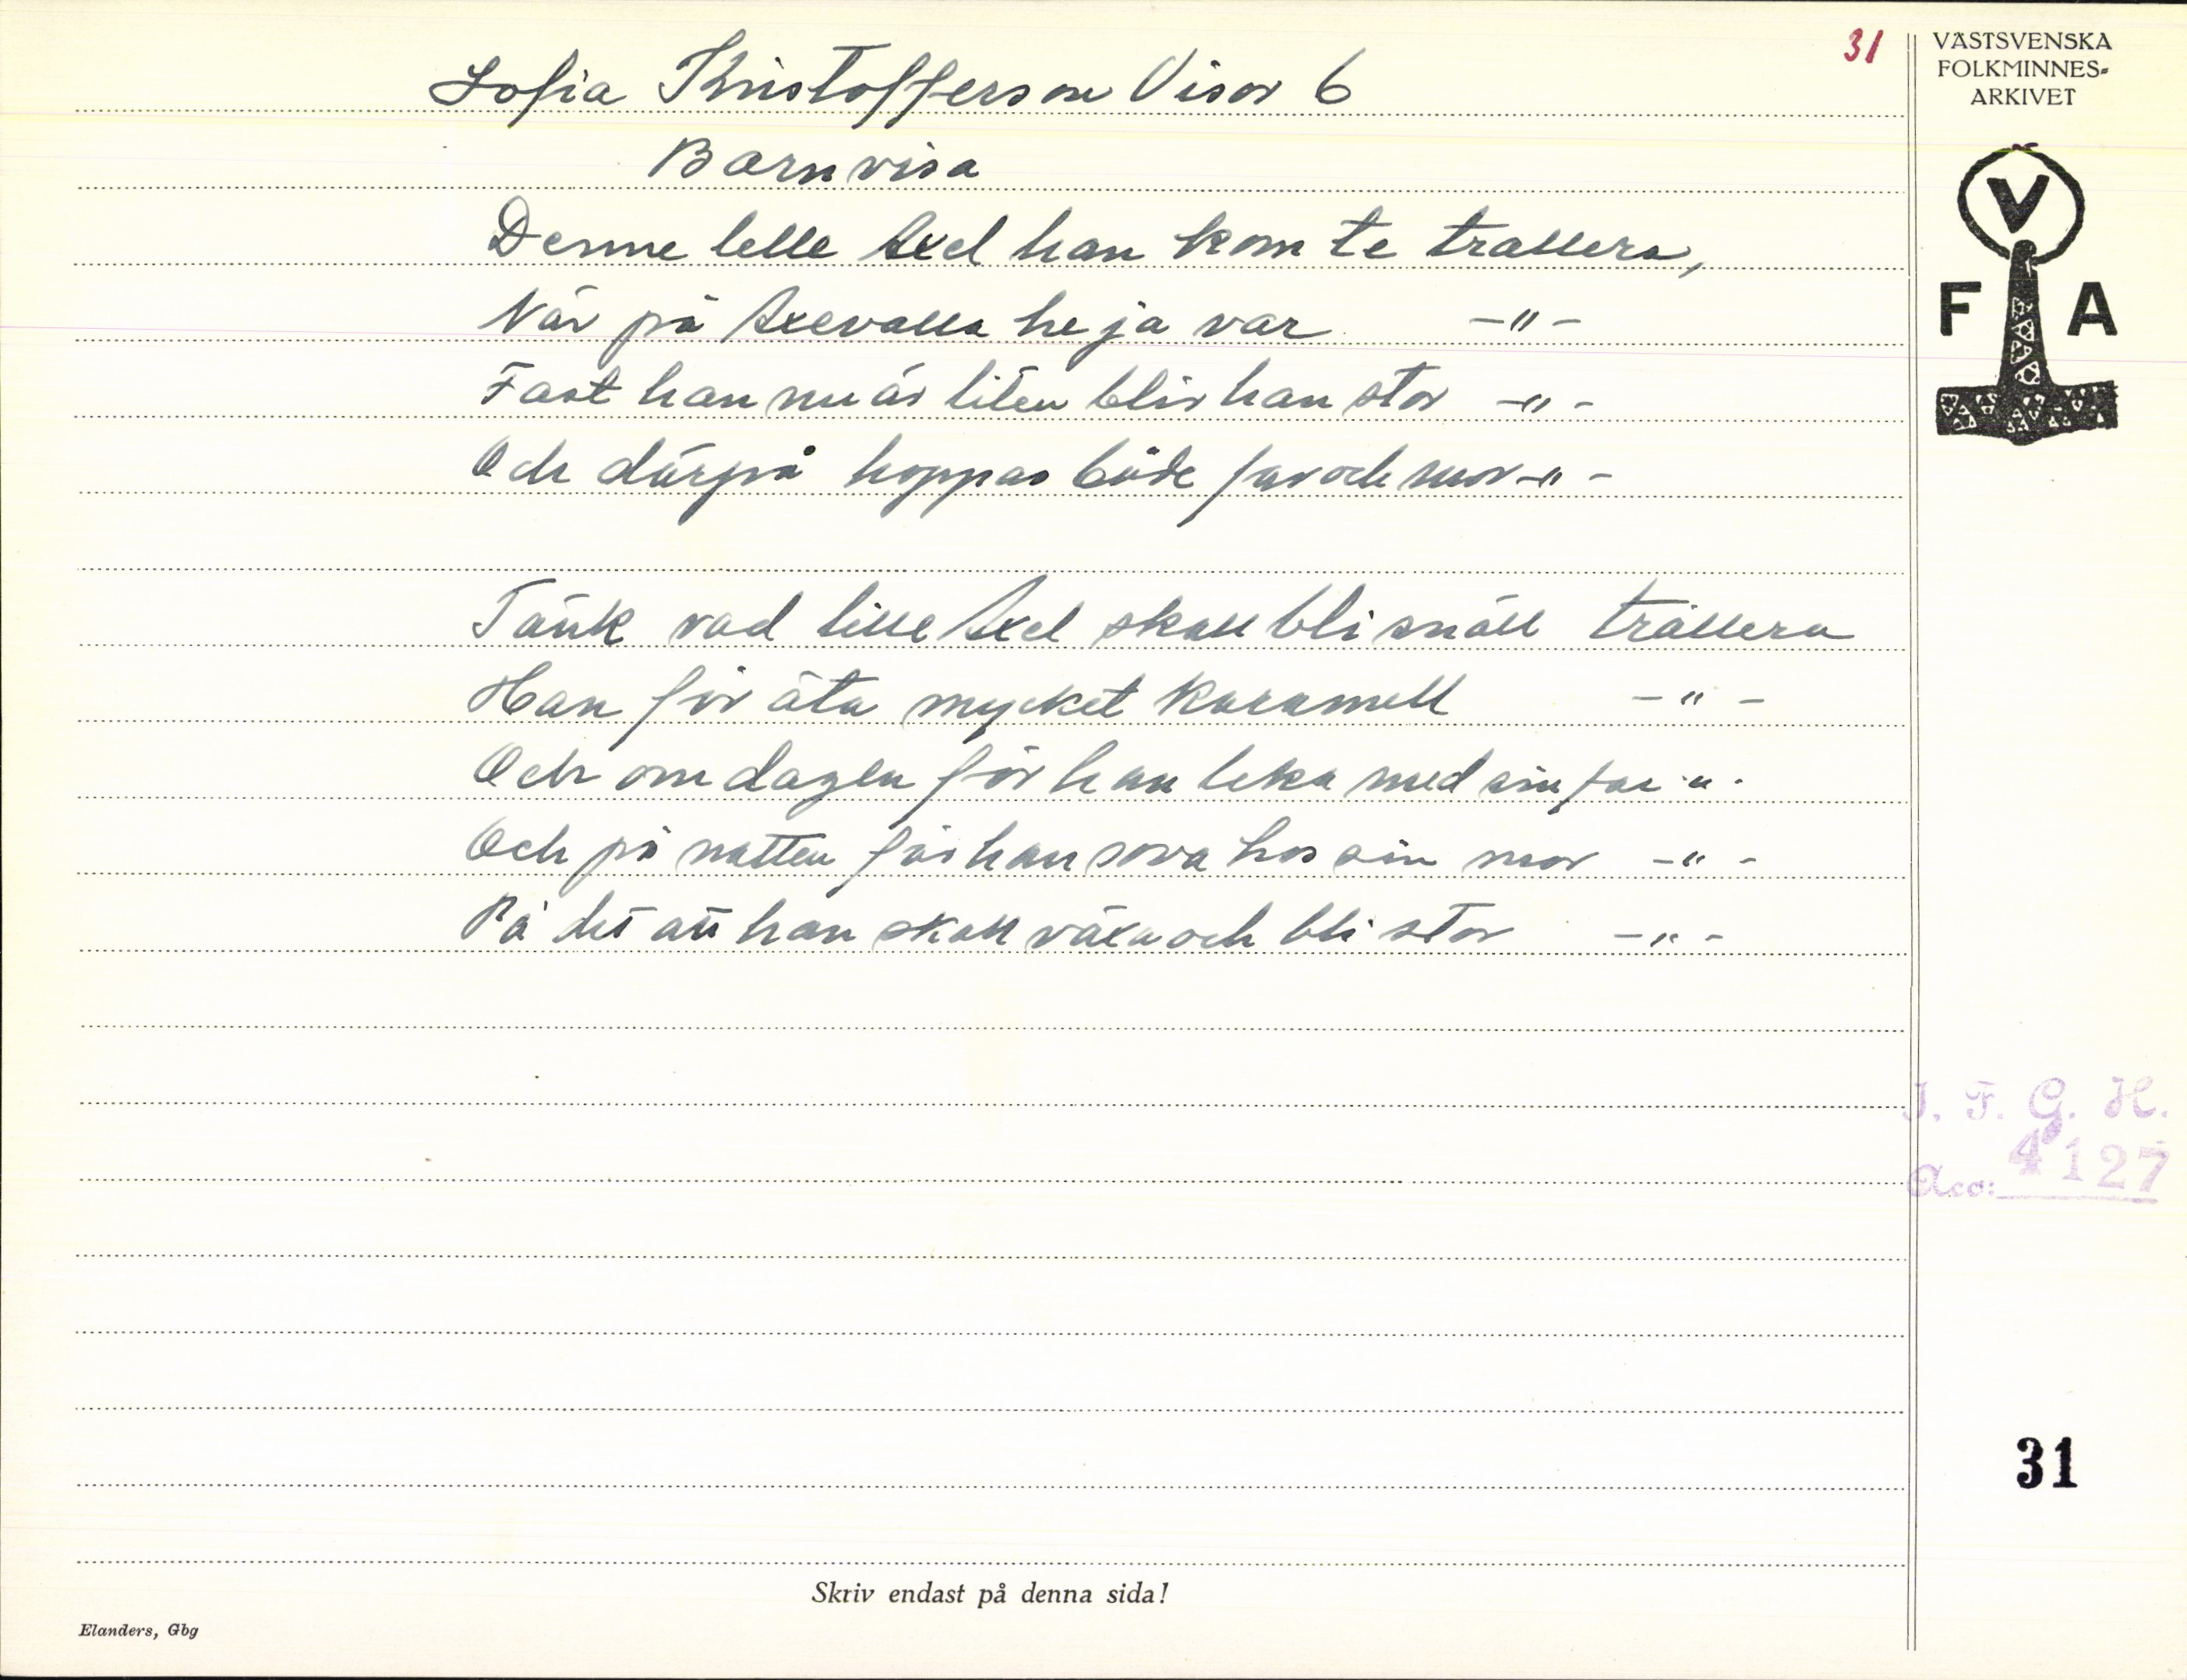 31
VÄSTSVENSKA
FOLKMINNES-
ARKIVET
Sofia Kristofferson Visor 6
Barnvisa
Denne lelle Axel han kom te trallera,
När på Axevalla heja var -"-
Fast han nu är liten blir han stor -"-
Och därpå hoppas både far och mor -"-
Tänk vad lille Axel skall bli snäll trallera
Han får äta mycket karamell -"-
Och om dagen får han leka med sin far -"-
Och på natten får han sova hos sin mor -"-
På det att han skall växa och bli stor -"-
V
F A
I. F. G. H.
Acc: 4127
31
Skriv endast på denna sida!
Elanders, Gbg